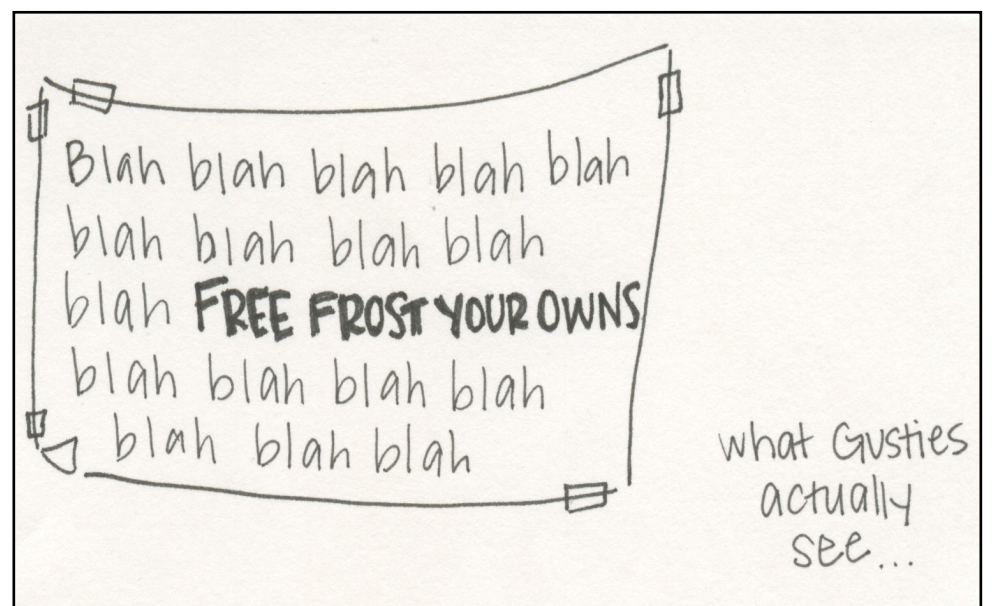 Blah blah blah blah blah
blah blah blah blah
blah FREE FROST YOUR OWNS
blah blah blah blah
blah blah blah
what Gusties
actually
see...